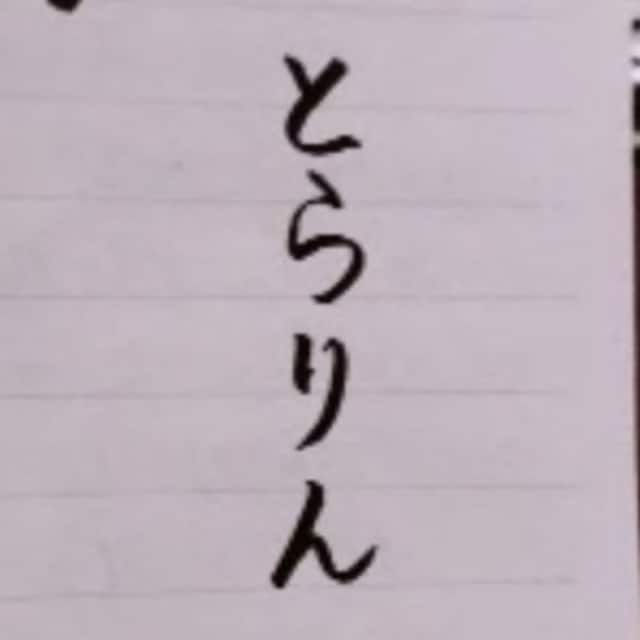 とらりん